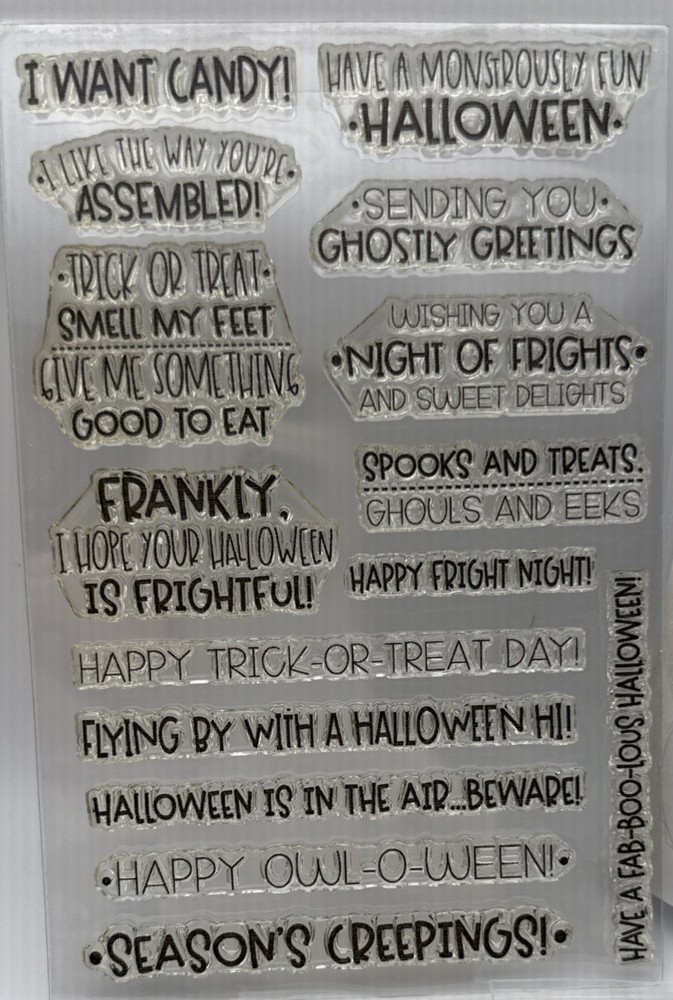 I WANT CANDY!
HAVE A MONSTROUSLY FUN
•HALLOWEEN•
•I LIKE THE WAY YOU'RE•
ASSEMBLED!
•SENDING YOU•
GHOSTLY GREETINGS
•TRICK OR TREAT•
SMELL MY FEET
GIVE ME SOMETHING
GOOD TO EAT
WISHING YOU A
•NIGHT OF FRIGHTS•
AND SWEET DELIGHTS
SPOOKS AND TREATS,
GHOULS AND EEKS
FRANKLY,
I HOPE YOUR HALLOWEEN
IS FRIGHTFUL!
HAPPY FRIGHT NIGHT!
HAPPY TRICK-OR-TREAT DAY!
FLYING BY WITH A HALLOWEEN HI!
HALLOWEEN IS IN THE AIR...BEWARE!
•HAPPY OWL-O-WEEN!•
•SEASON'S CREEPINGS!•
HAVE A FAB-BOO-LOUS HALLOWEEN!